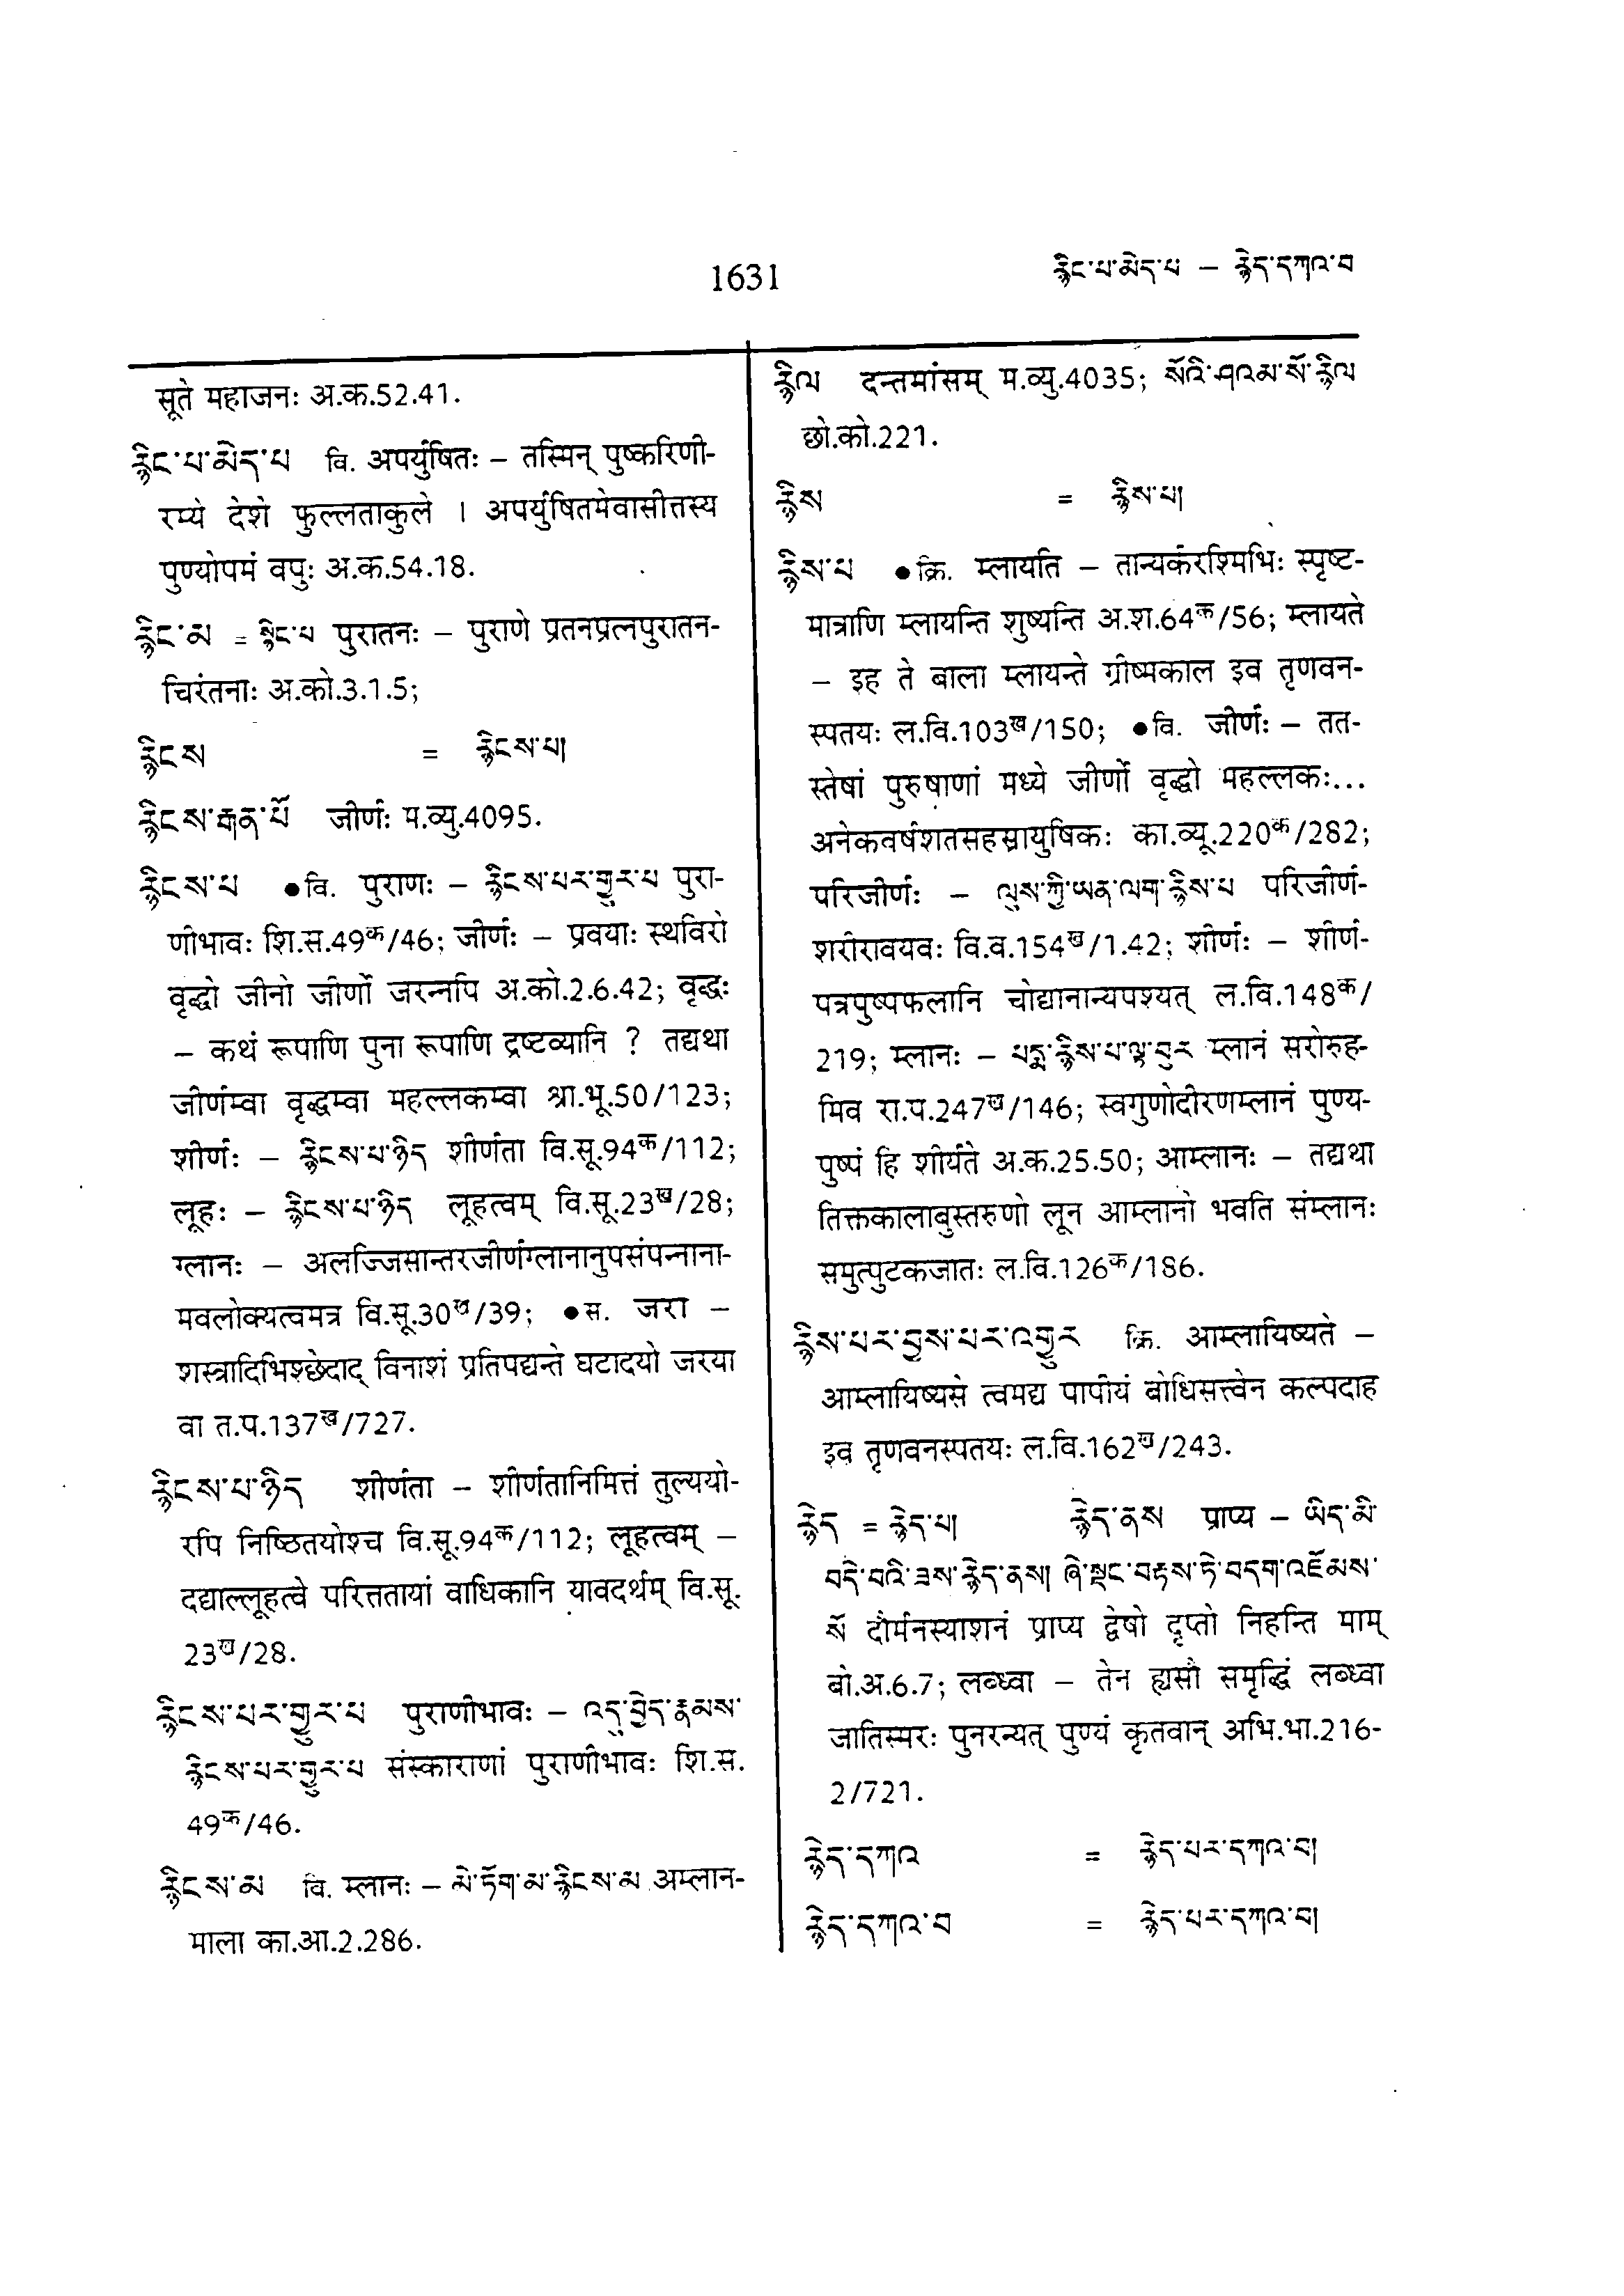 1631
རྙིང་པ་མེད་པ – རྙེད་དཀའ་བ
सूते महाजनः अ.क.52.41.
རྙིང་པ་མེད་པ वि. अपर्युषितः – तस्मिन् पुष्करिणी-
रम्ये देशे फुल्लताकुले । अपर्युषितमेवासीत्तस्य
पुण्योपमं वपुः अ.क.54.18.
རྙིང་མ = རྙིང་པ पुरातनः – पुराणे प्रतनप्रत्नपुरातन-
चिरंतनाः अ.को.3.1.5;
རྙིངས = རྙིངས་པ།
རྙིངས་རྒན་པོ जीर्णः म.व्यु.4095.
རྙིངས་པ ●वि. पुराणः – རྙིངས་པར་གྱུར་པ पुरा-
णीभावः शि.स.49क/46; जीर्णः – प्रवयाः स्थविरो
वृद्धो जीनो जीर्णो जरन्नपि अ.को.2.6.42; वृद्धः
– कथं रूपाणि पुना रूपाणि द्रष्टव्यानि ? तद्यथा
जीर्णम्वा वृद्धम्वा महल्लकम्वा श्रा.भू.50/123;
शीर्णः – རྙིངས་པ་ཉིད शीर्णता वि.सू.94क/112;
लूहः – རྙིངས་པ་ཉིད लूहत्वम् वि.सू.23ख/28;
ग्लानः – अलज्जिसान्तरजीर्णग्लानानुपसंपन्नाना-
मवलोक्यत्वमत्र वि.सू.30ख/39; ●स. जरा –
शस्त्रादिभिश्छेदाद् विनाशं प्रतिपद्यन्ते घटादयो जरया
वा त.प.137ख/727.
རྙིངས་པ་ཉིད शीर्णता – शीर्णतानिमित्तं तुल्ययो-
रपि निष्ठितयोश्च वि.सू.94क/112; लूहत्वम् –
दद्याल्लूहत्वे परित्ततायां वाधिकानि यावदर्थम् वि.सू.
23ख/28.
རྙིངས་པར་གྱུར་པ पुराणीभावः – འདུ་བྱེད་རྣམས་
རྙིངས་པར་གྱུར་པ संस्काराणां पुराणीभावः शि.स.
49क/46.
རྙིངས་མ वि. म्लानः – མེ་ཏོག་མ་རྙིངས་མ अम्लान-
माला का.आ.2.286.
རྙིལ दन्तमांसम् म.व्यु.4035; སོའི་ཤའམ་སོ་རྙིལ
छो.को.221.
རྙིས = རྙིས་པ།
རྙིས་པ ●क्रि. म्लायति – तान्यर्करश्मिभिः स्पृष्ट-
मात्राणि म्लायन्ति शुष्यन्ति अ.श.64क/56; म्लायते
– इह ते बाला म्लायन्ते ग्रीष्मकाल इव तृणवन-
स्पतयः ल.वि.103ख/150; ●वि. जीर्णः – तत-
स्तेषां पुरुषाणां मध्ये जीर्णो वृद्धो महल्लकः...
अनेकवर्षशतसहस्रायुषिकः का.व्यू.220क/282;
परिजीर्णः – ལུས་ཀྱི་ཡན་ལག་རྙིས་པ परिजीर्ण-
शरीरावयवः वि.व.154ख/1.42; शीर्णः – शीर्ण-
पत्रपुष्पफलानि चोद्यानान्यपश्यत् ल.वि.148क/
219; म्लानः – པདྨ་རྙིས་པ་ལྟ་བུར म्लानं सरोरुह-
मिव रा.प.247ख/146; स्वगुणोदीरणम्लानं पुण्य-
पुष्पं हि शीर्यते अ.क.25.50; आम्लानः – तद्यथा
तिक्तकालाबुस्तरुणो लून आम्लानो भवति संम्लानः
समुत्पुटकजातः ल.वि.126क/186.
རྙིས་པར་བྱས་པར་འགྱུར क्रि. आम्लायिष्यते –
आम्लायिष्यसे त्वमद्य पापीयं बोधिसत्त्वेन कल्पदाह
इव तृणवनस्पतयः ल.वि.162ख/243.
རྙེད = རྙེད་པ། རྙེད་ནས प्राप्य – ཡིད་མི་
བདེ་བའི་ཟས་རྙེད་ནས། ཞེ་སྡང་བརྟས་ཏེ་བདག་འཇོམས་
སོ दौर्मनस्याशनं प्राप्य द्वेषो दृप्तो निहन्ति माम्
बो.अ.6.7; लब्ध्वा – तेन ह्यसौ समृद्धिं लब्ध्वा
जातिस्मरः पुनरन्यत् पुण्यं कृतवान् अभि.भा.216-
2/721.
རྙེད་དཀའ = རྙེད་པར་དཀའ་བ།
རྙེད་དཀའ་བ = རྙེད་པར་དཀའ་བ།